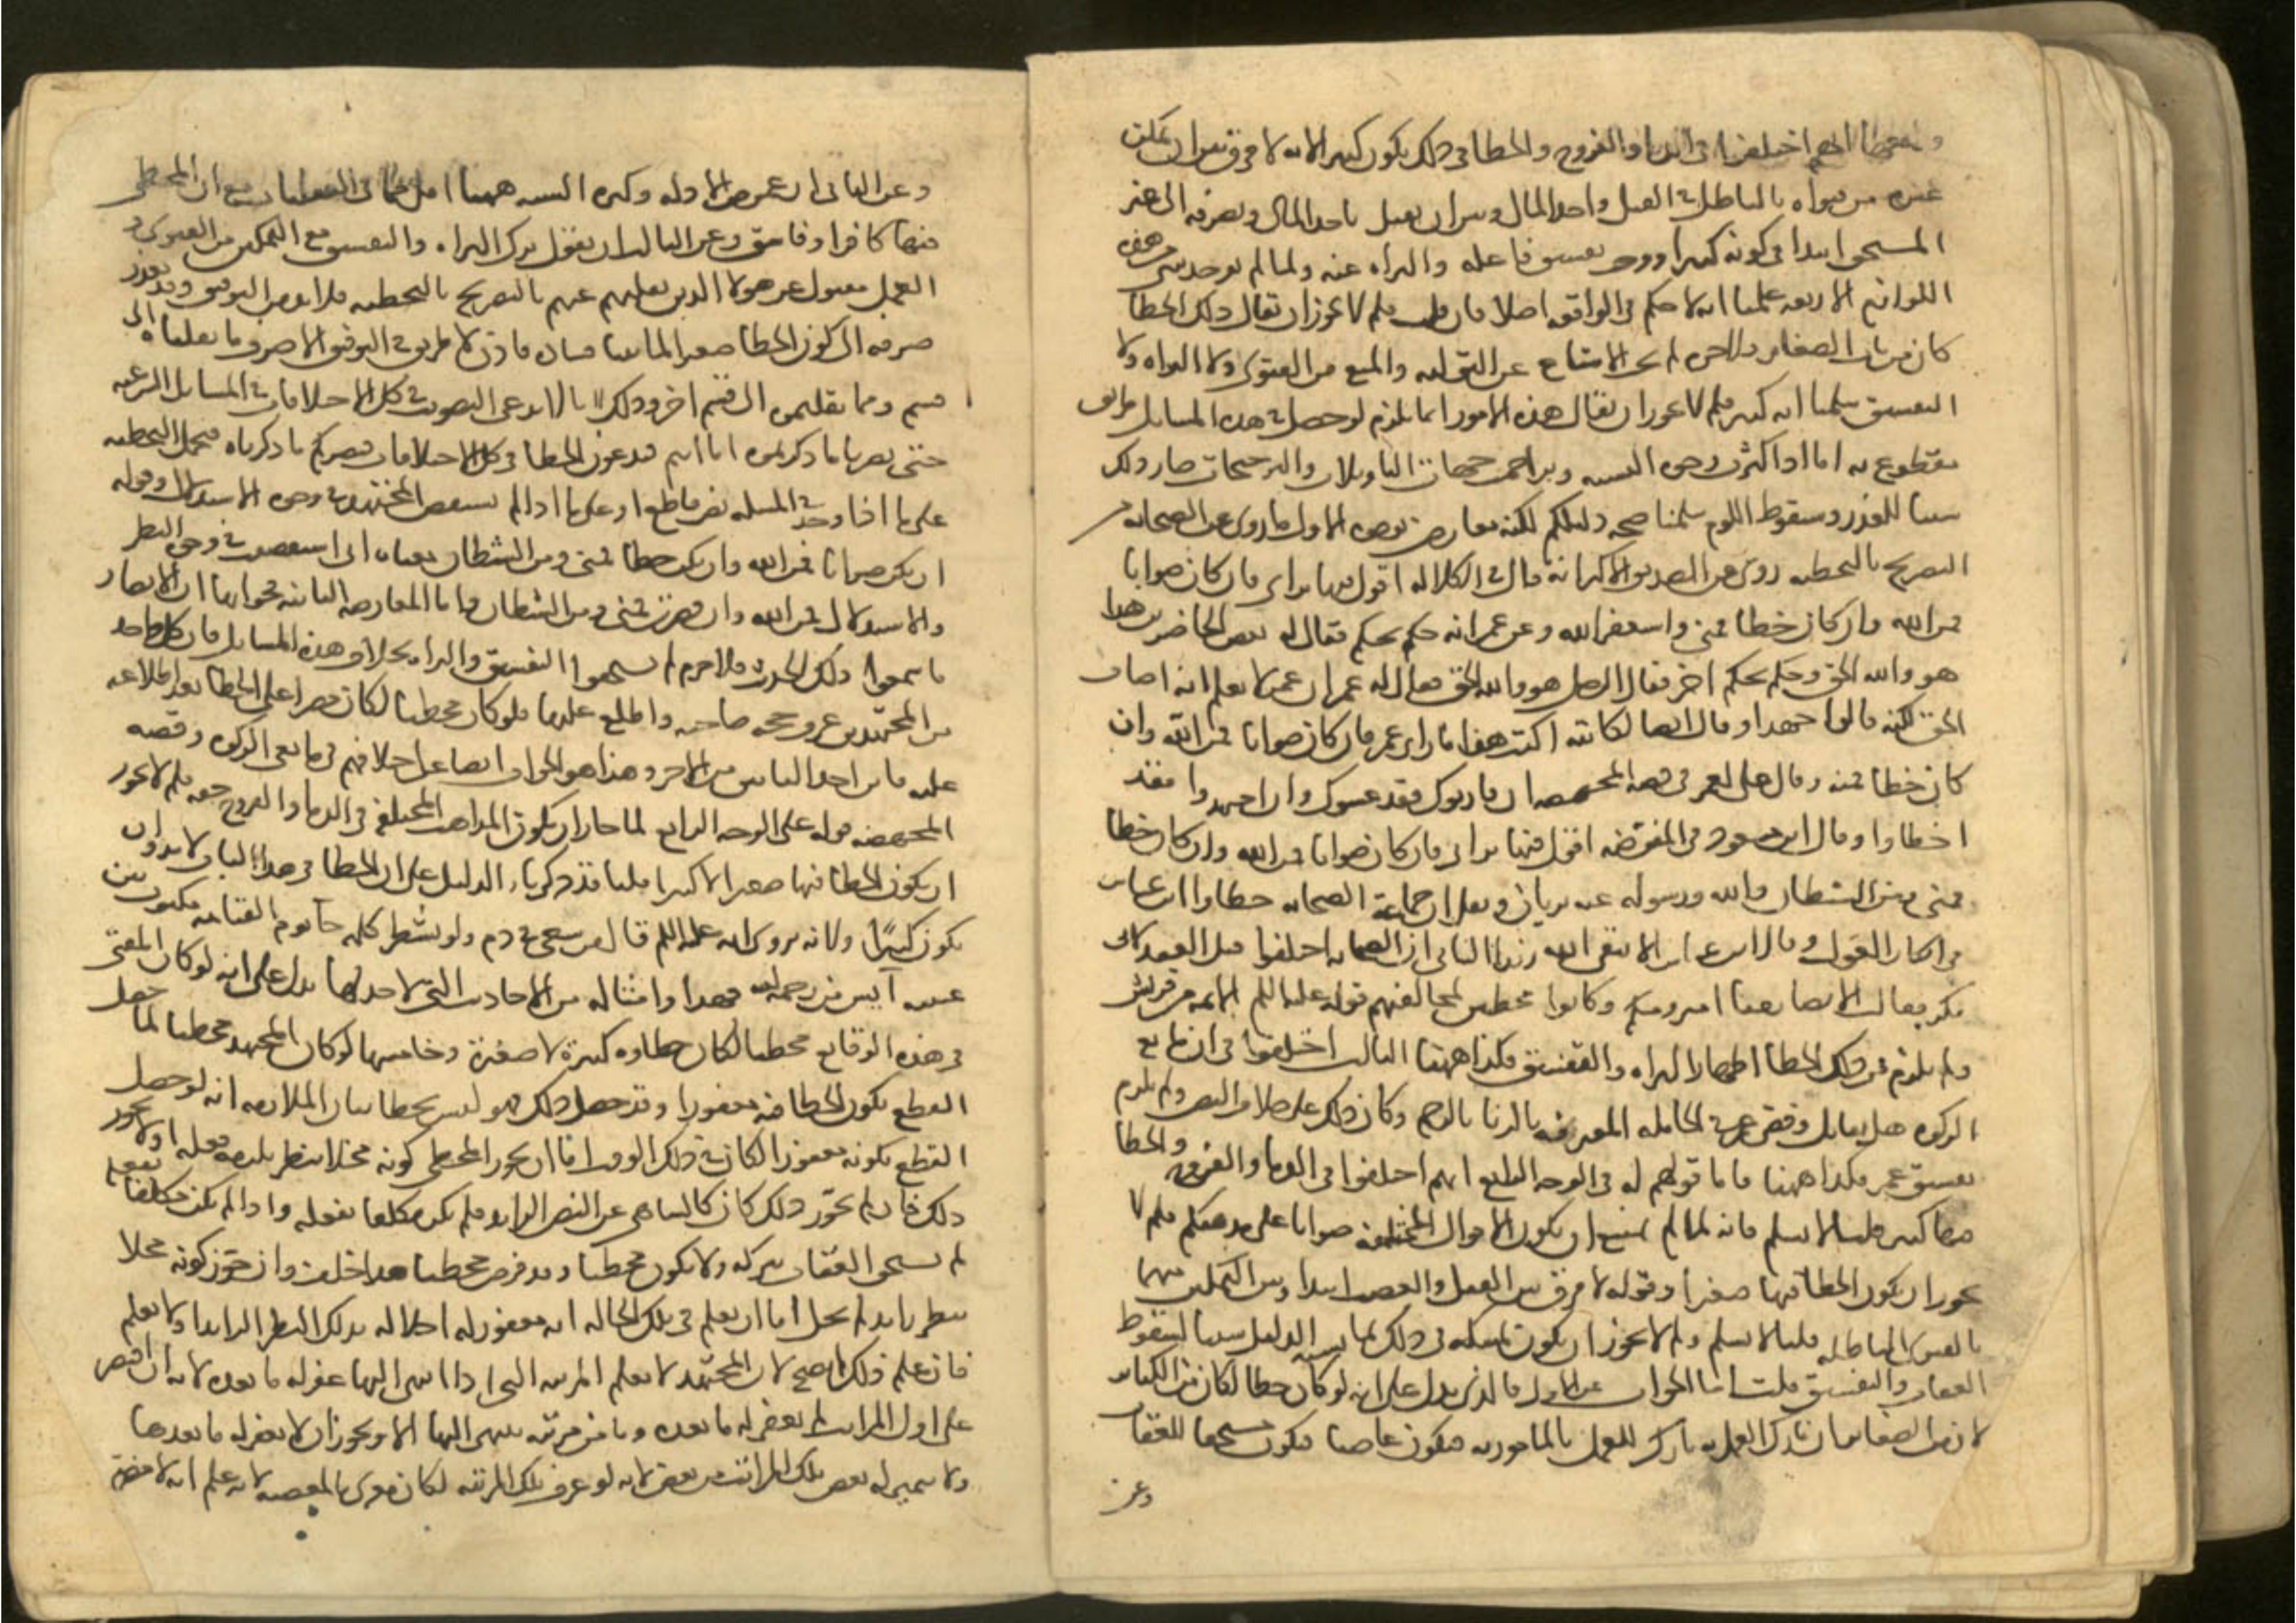 اختلفوا في الدما والفروج والخطا في ذلك يكون كبيرا لانه لا فرق بين ان يمكن
غيره من هواه بالباطل في القتل واخذ المال وبين ان يقتل ياخذ المال ويصرفه الى غير
المستحق ابتدا في كونه كبيرا ووجب تفسيق فاعله والبراه عنه ولما لم يوجد شي من هذه
اللوازم الاربعه علمنا انه لا حكم في الواقعه اصلا فان قلت فلم لا يجوز ان يقال ذلك الخطا
كان من باب الصغاير فلا جرم لم يجب الامتناع عن التوليه والمنع من الفتوى ولا البراه ولا
التفسيق سلمنا انه كبير فلم لا يجوز ان يقال هذه الامور انما يلزم لو حصل في هذه المسايل طريق
مقطوع به اما اذا كثرت وجوه الشبه وتزاحمت جهات التاويلات والترجيحات صار ذلك
سببا للعذر وسقوط اللوم سلمنا صحه دليلكم لكنه معارض بوجوه الاول ما روى عن الصحابه من
التصريح بالتخطيه روى عن الصديق الاكبر انه قال في الكلاله اقول فيها براي فان كان صوابا
فمن الله وان كان خطا فمني واستغفر الله وعن عمر انه حكم بحكم فقال له بعض الحاضرين هذا
هو والله الحق وحكم بحكم اخر فقال الرجل هو والله الحق فقال له عمر ان عمر لا يعلم انه اصاب
الحق لكنه ما الوا جهدا وقال ايضا لكاتبه اكتب هذا ما راى عمر فان كان صوابا فمن الله وان
كان خطا فمنه وقال علي لعمر في قصه المجهضه ان قاربوك فقد غشوك وان اجتهدوا فقد
اخطاوا وقال ابن مسعود في المفوضه اقول فيها براي فان كان صوابا فمن الله وان كان خطا
فمني ومن الشيطان والله ورسوله عنه بريان ونقل ان جماعة الصحابه خطاوا ابن عباس
في انكار العول وقال ابن عباس الا يتقي الله زيد الثاني ان الصحابه اختلفوا قبل العقد لابي
بكر فقالت الانصار منا امير ومنكم وكانوا مخطين لمخالفتهم قوله عليه السلم الايمه من قريش
ولم يلزم من ذلك الخطا اظهار البراه والتفسيق فكذا ههنا الثالث اختلفوا في ان مانع
الزكوه هل يقاتل وقضى عمر في الحامله المعترفه بالزنا بالرجم وكان ذلك على خلاف النص ولم يلزم
تفسيق عمر فكذا ههنا واما قولهم له في الوجه الرابع انهم اختلفوا في الدما والفروج والخطا
فيها كبير قلنا لا نسلم فانه لما لم يمتنع ان يكون الاقوال المختلفه صوابا على مذهبكم فلم لا
يجوز ان يكون الخطا فيها صغيرا وقوله لا فرق بين القتل والغصب ابتدا وبين التمكين منهما
بالفتوى الباطله قلنا لا نسلم ولم لا يجوز ان يكون تمسكه في ذلك بما يشبه الدليل سببا لسقوط
العقاب والتفسيق قلت اما الجواب عن الاول فالذي يدل على انه لو كان خطا لكان من الكباير
لا من الصغاير ان تارك العمل به تارك للعمل بالمامور به فيكون عاصيا فيكون مستحقا للعقاب
وعن
وعن الثاني ان غموض الادله وكثره الشبه ههنا اقل مما في العقليات مع ان المخطي
فيها كافر او فاسق وعن الثالث ان نقول ترك البراه والتفسيق مع التمكين من الفتوى و
العمل منقول عن هولا الذين نقلتم عنهم بالتصريح بالتخطيه فلا بد من التوفيق وقد تعذر
صرفه الى كون الخطا صغيرا لما بينا فساده فاذن لا طريق في التوفيق الا صرف ما نقلناه الى
قسم وما نقلتموه الى قسم اخر وذلك لانا لا ندعي التصويب في كل الاختلافات في المسايل الشرعيه
حتى يضرنا ما ذكرتموه اما انتم فتدعون الخطا في كل الاختلافات فيضركم ما ذكرناه فنحمل التخطيه
على ما اذا وجد في المسله نص قاطع او على ما اذا لم يستقص المجتهد في وجوه الاستدلال وقوله
ان يكن صوابا فمن الله وان يكن خطا فمني ومن الشيطان معناه اني استقصيت في وجوه النظر
والاستدلال فمن الله وان قصرت فمني ومن الشيطان واما المعارضه الثانيه فجوابها ان الانصار
ما سمعوا ذلك الحديث فلا جرم لم يستحقوا التفسيق والبراه بخلاف هذه المسايل فان كل واحد
من المجتهدين عرف حجه صاحبه واطلع عليها فلو كان مخطيا لكان مصرا على الخطا بعد اطلاعه
عليه فاين احد البابين من الاخر وهذا هو الجواب ايضا عن اختلافهم في مانعي الزكوه وقصه
المجهضه قوله على الوجه الرابع لما جاز ان يكون المذاهب المختلفه في الدما والفروج حقه فلم لا يجوز
ان يكون الخطا فيها صغيرا لا كبيرا قلنا قد ذكرنا الدليل على ان الخطا في هذا الباب لا بد وان
يكون كبيرا ولانه يروى انه عليه السلم قال من سعى في دم ولو بشطر كلمه جا يوم القيامه مكتوب بين
عينيه آيس من رحمه الله فهذا وامثاله من الاحاديث التي لا حد لها يدل على انه لو كان المفتي
في هذه الوقايع مخطيا لكان خطاوه كبيرة لا صغيرة وخامسها لو كان المجتهد مخطيا لما حصل
القطع بكون الخطا فيه مغفورا وقد حصل ذلك فهو ليس بخطا بيان الملازمه انه لو حصل
القطع بكونه مغفورا لكان في ذلك الوقت اما ان يجوز المخطي كونه مخلا بنظر يلزمه فعله او لا يجوز
ذلك فان لم يجوز ذلك كان كالساهي عن النظر الزايد فلم يكن مكلفا بفعله واذا لم يكن مكلفا بفعله
لم يستحق العقاب بتركه ولا يكون مخطيا وقد فرض مخطيا هذا خلف وان جوز كونه مخلا
بنظر زايد لم يخل اما ان يعلم في تلك الحاله انه مغفور له اخلاله بذلك النظر الزايد او لا يعلم
فان علم ذلك لم يصح لان المجتهد لا يعلم المرتبه التي اذا انتهى اليها غفر له ما بعده لانه ان اقتصر
على اول المراتب لم يغفر له ما بعده وما من مرتبه ينتهي اليها الا ويجوز ان لا يغفر له ما بعدها
ولا يتميز له بعض تلك المراتب من بعض لانه لو عرف تلك المرتبه لكان مغرى بالمعصيه لانه علم انه لا مضرة